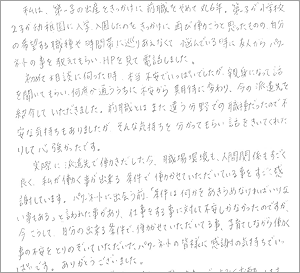 私は、第一子の出産をきっかけに前職をやめて丸6年、第三子が小学校
2才が幼稚園に入学、入園したのをきっかけに再び働こうと思ったものの、自分
の希望する職種や時間帯に巡りあえなくて悩んでいる時に友人から、パワ
ネットの事を教えてもらい、HPを見て電話しました。
初めて相談に伺った時、本当不安でいっぱいでしたが、親身になって話
を聞いてもらい、何度か通ううちに不安から期待に変わり、今の派遣先を
紹介していただきました。前職とはまた違う分野での職種だったので不
安な気持もありましたが、そんな気持ちを分かってもらい話をきいてくれたりして
心強かったです。
実際に派遣先で働きだしたら、職場環境も人間関係もすごく
良く、私が働く事が出来る条件で働かせていただいている事をすごく感
謝しています。パワーネットに出会う前、「条件は何かをあきらめなければいけな
い事もある」と言われた事があり、仕事をする事に対して不安しかなかったのですが、
今こうして、自分の出来る条件で、働かせていただいてる事、子育てしながら働く
事の不安をとりのぞいていただいた、パワーネットの皆様に感謝の気持ちでいっ
ぱいです。ありがとうございました。